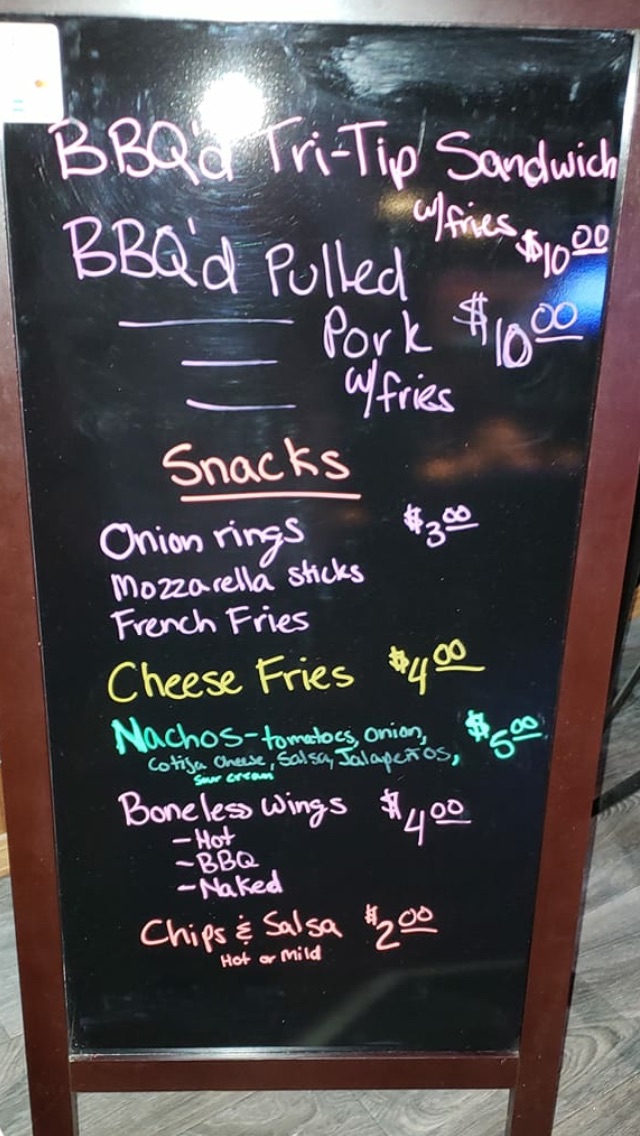 BBQ'd Tri-Tip Sandwich
w/fries $10.00
BBQ'd Pulled
Pork $10.00
w/fries
Snacks
Onion rings $3.00
Mozzarella sticks
French Fries
Cheese Fries $4.00
Nachos - tomatoes, onion, $5.00
Cotija Cheese, Salsa, Jalapeños,
Sour cream
Boneless wings $4.00
- Hot
- BBQ
- Naked
Chips & Salsa $2.00
Hot or Mild